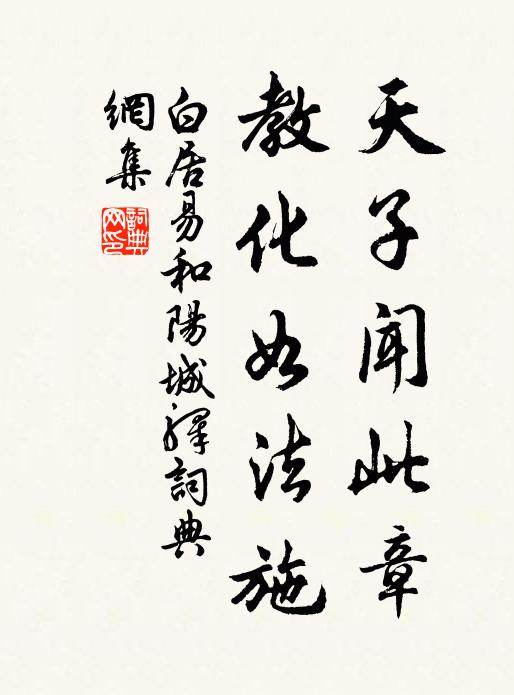 天子聞此章
教化如法施
白居易和陽城驛詞典
網集
詞典
网印